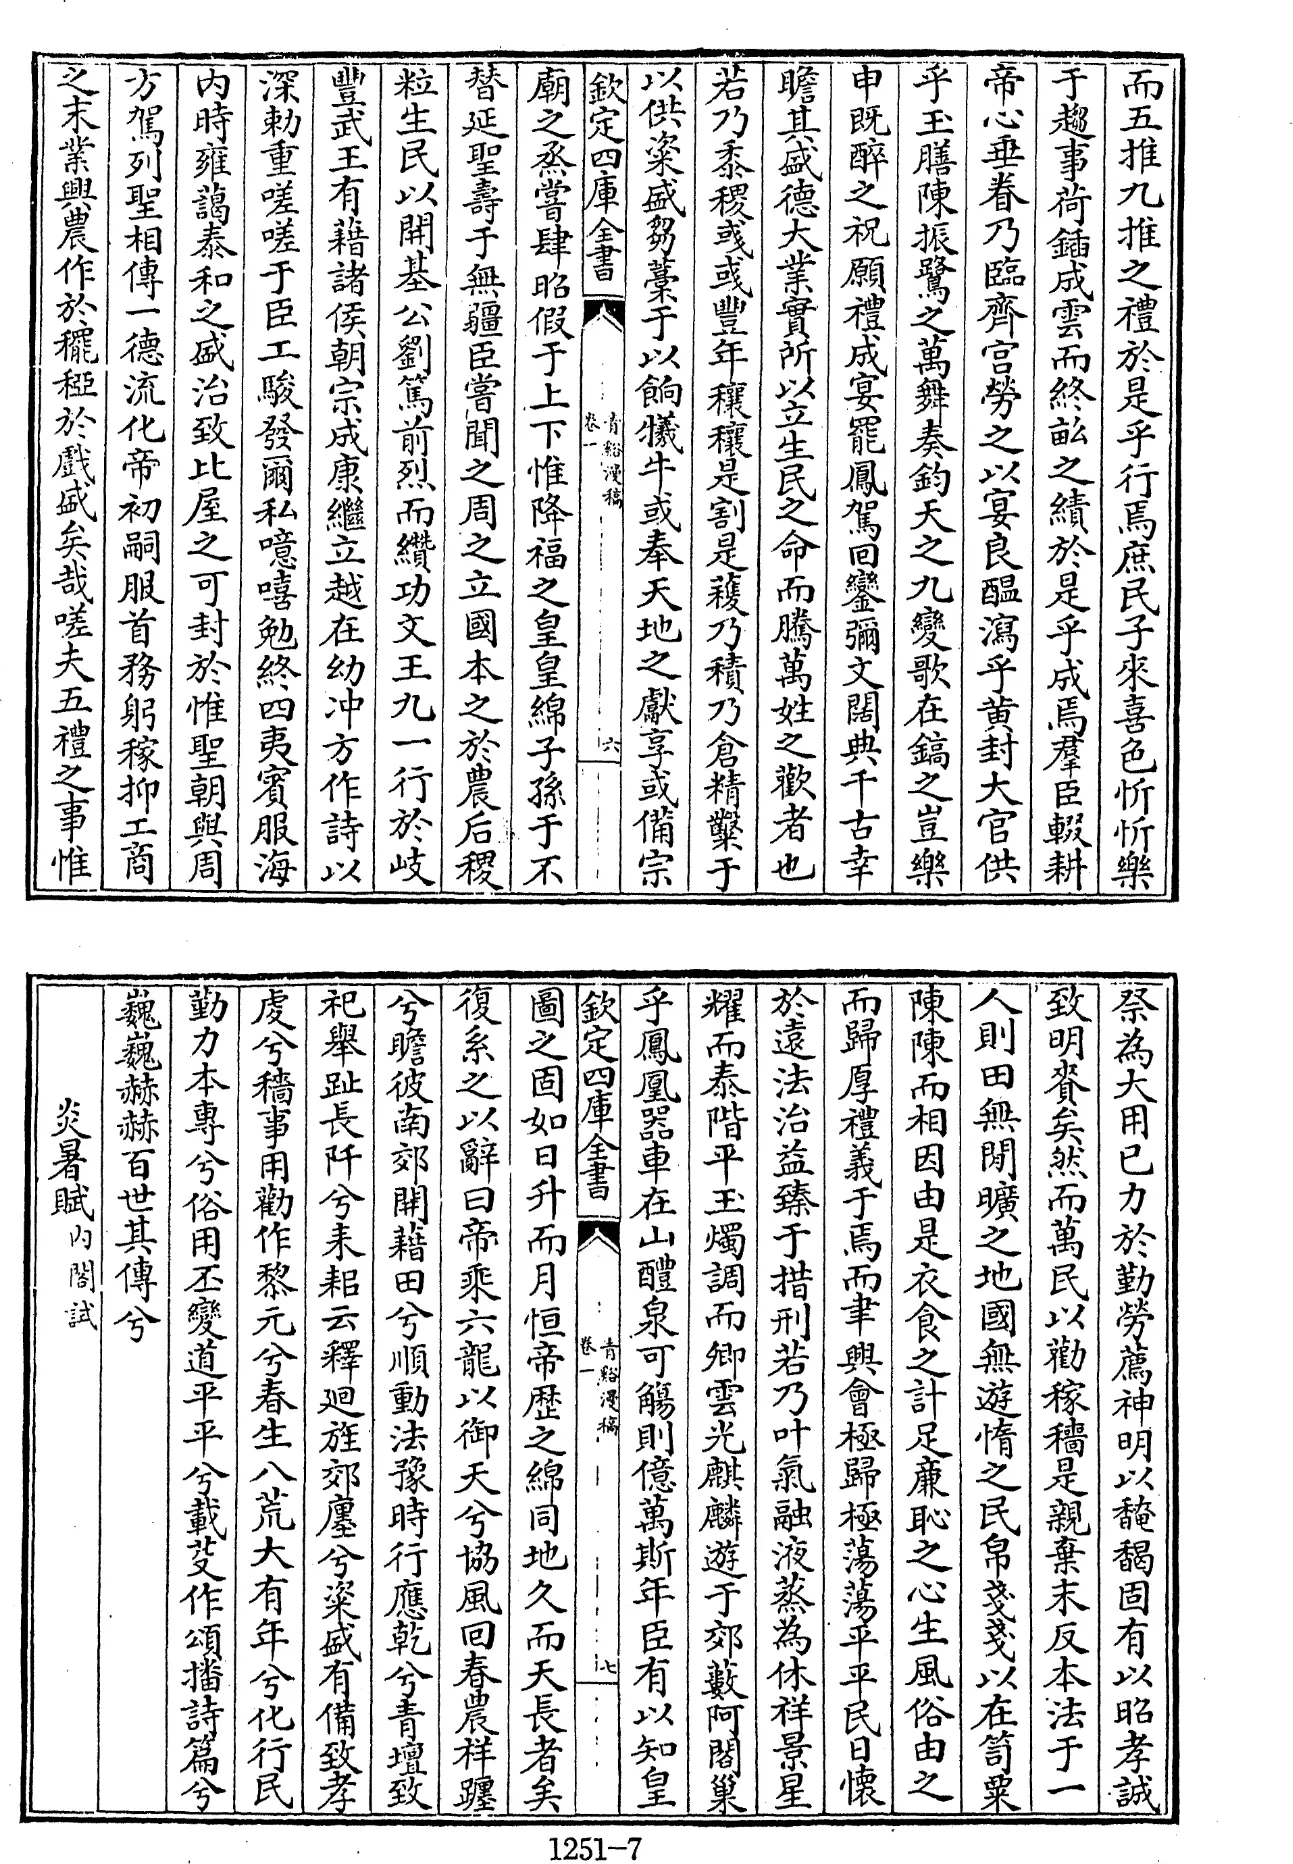 而五推九推之禮於是乎行焉庶民子來喜色忻忻樂
于趨事荷鍤成雲而終畝之績於是乎成焉羣臣輟耕
帝心垂眷乃臨齊宫勞之以宴良醖瀉乎黄封大官供
乎玉膳陳振鷺之萬舞奏鈞天之九變歌在鎬之豈樂
申既醉之祝願禮成宴罷鳳駕回鑾彌文闊典千古幸
瞻其盛德大業實所以立生民之命而騰萬姓之歡者也
若乃黍稷彧彧豐年穰穰是割是穫乃積乃倉精鑿于
以供粢盛芻藁于以餉犧牛或奉天地之獻享或備宗
欽定四庫全書
青谿漫稿
卷一
六
廟之烝嘗肆昭假于上下惟降福之皇皇綿子孫于不
替延聖壽于無疆臣嘗聞之周之立國本之於農后稷
粒生民以開基公劉篤前烈而纘功文王九一行於岐
豐武王有藉諸侯朝宗成康繼立越在幼冲方作詩以
深勅重嗟嗟于臣工駿發爾私噫嘻勉終四夷賓服海
内時雍藹泰和之盛治致比屋之可封於惟聖朝與周
方駕列聖相傳一德流化帝初嗣服首務躬稼抑工商
之末業興農作於䆉稏於戲盛矣哉嗟夫五禮之事惟
祭為大用已力於勤勞薦神明以馣馤固有以昭孝誠
致明賚矣然而萬民以勸稼穡是親棄末反本法于一
人則田無閒曠之地國無遊惰之民帛戔戔以在笥粟
陳陳而相因由是衣食之計足廉恥之心生風俗由之
而歸厚禮義于焉而聿興會極歸極蕩蕩平平民日懷
於遠法治益臻于措刑若乃叶氣融液蒸為休祥景星
耀而泰階平玉燭調而卿雲光麒麟遊于郊藪阿閣巢
乎鳳凰器車在山醴泉可觴則億萬斯年臣有以知皇
欽定四庫全書
青谿漫稿
卷一
七
圖之固如日升而月恒帝歴之綿同地久而天長者矣
復系之以辭曰帝乘六龍以御天兮協風回春農祥躔
兮瞻彼南郊開藉田兮順動法豫時行應乾兮青壇致
祀舉趾長阡兮耒耜云釋廻旌郊廛兮粢盛有備致孝
虔兮穡事用勸作黎元兮春生八荒大有年兮化行民
勤力本專兮俗用丕變道平平兮載芟作頌播詩篇兮
巍巍赫赫百世其傳兮
炎暑賦内閣試
1251-7